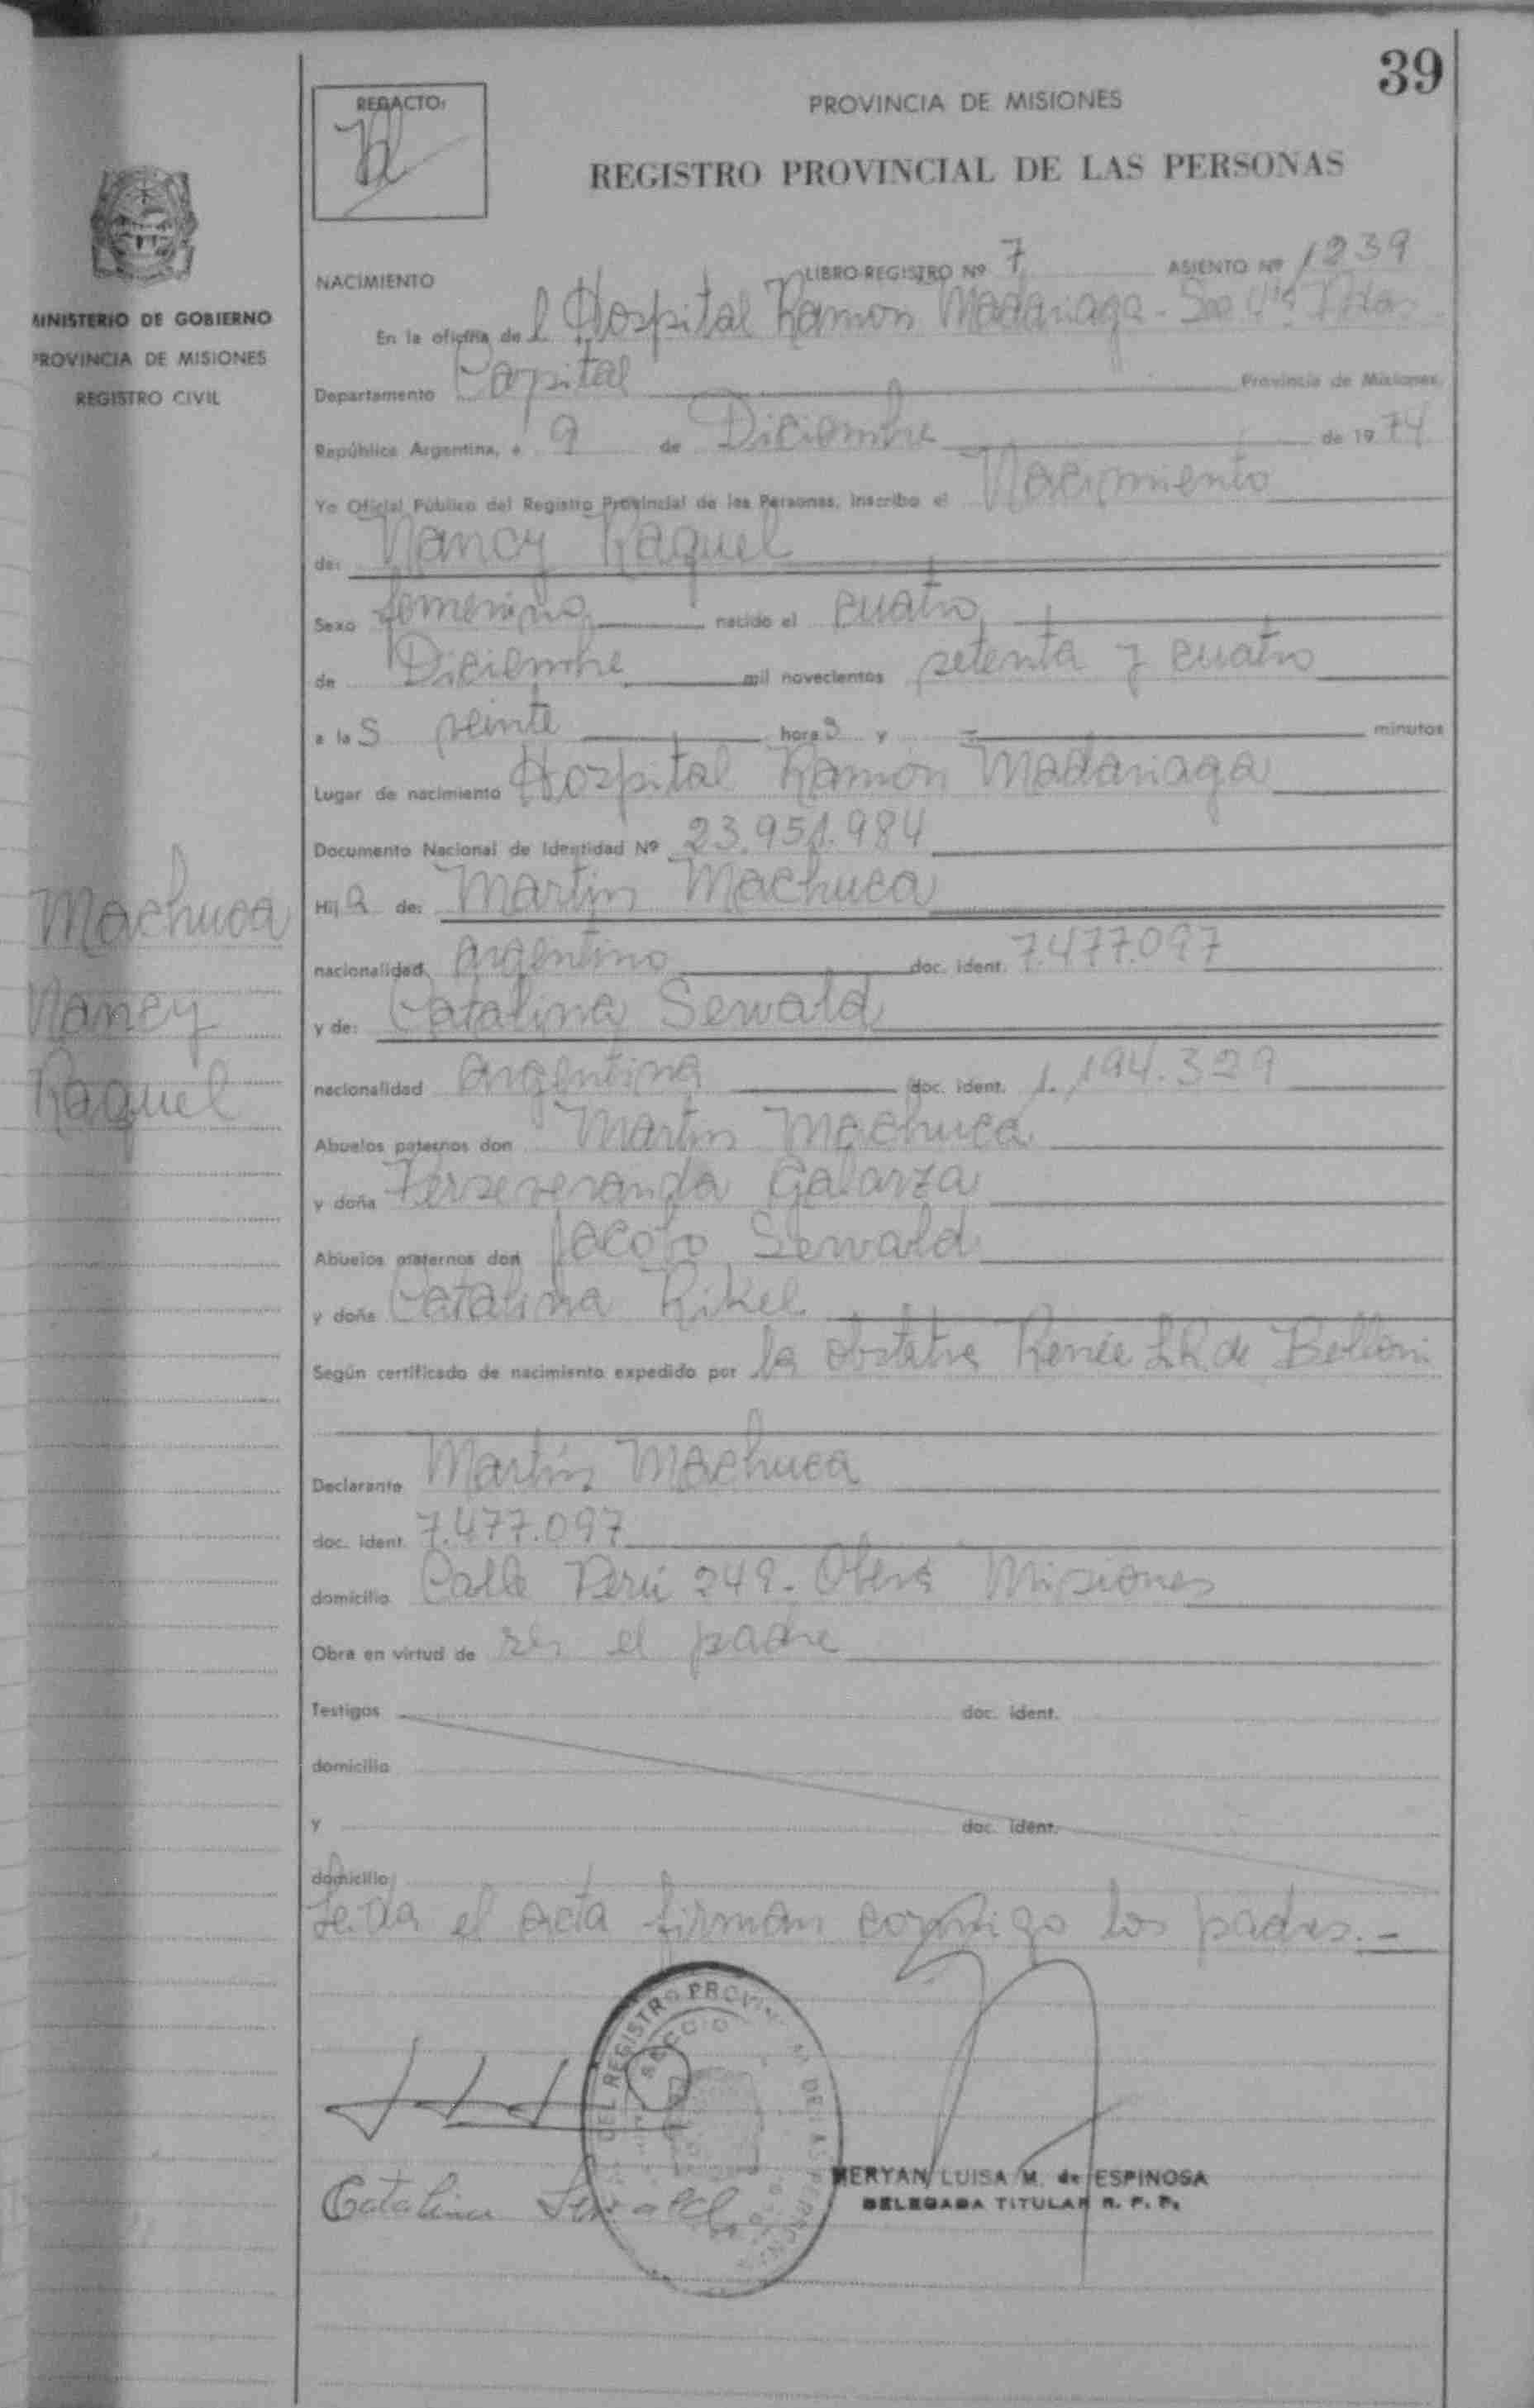 39
REDACTO:
PROVINCIA DE MISIONES
REGISTRO PROVINCIAL DE LAS PERSONAS
MINISTERIO DE GOBIERNO
PROVINCIA DE MISIONES
REGISTRO CIVIL
NACIMIENTO LIBRO-REGISTRO Nº 7 ASIENTO Nº 1239
En la oficina del Hospital Ramón Madariaga - Sec 4ta Pdas
Departamento Capital Provincia de Misiones,
República Argentina, a 9 de Diciembre de 1974
Yo Oficial Público del Registro Provincial de las Personas, inscribo el Nacimiento
de: Nancy Raquel
Sexo femenino nacido el cuatro
de Diciembre mil novecientos setenta y cuatro
a las veinte horas y = minutos
Lugar de nacimiento Hospital Ramón Madariaga
Documento Nacional de Identidad Nº 23.951.984
Machuca
Nancy
Raquel
Hija de: Martin Machuca
nacionalidad argentino doc. ident. 7.477.097
y de: Catalina Sewald
nacionalidad argentina doc. ident. 1.194.329
Abuelos paternos don Martin Machuca
y doña Perseveranda Galarza
Abuelos maternos don Jacobo Sewald
y doña Catalina Rikel
Según certificado de nacimiento expedido por la obstetra Renée L.R. de Belloni
Declarante Martín Machuca
doc. ident. 7.477.097
domicilio Calle Perú 249 - Oberá Misiones
Obra en virtud de ser el padre
Testigos doc. ident.
domicilio
y doc. ident.
domicilio
Leída el acta firman conmigo los padres.-
DEL REGISTRO PROVINCIAL DE LAS PERSONAS
Catalina Sewald
MERYAN LUISA M. de ESPINOSA
DELEGADA TITULAR R. P. P.